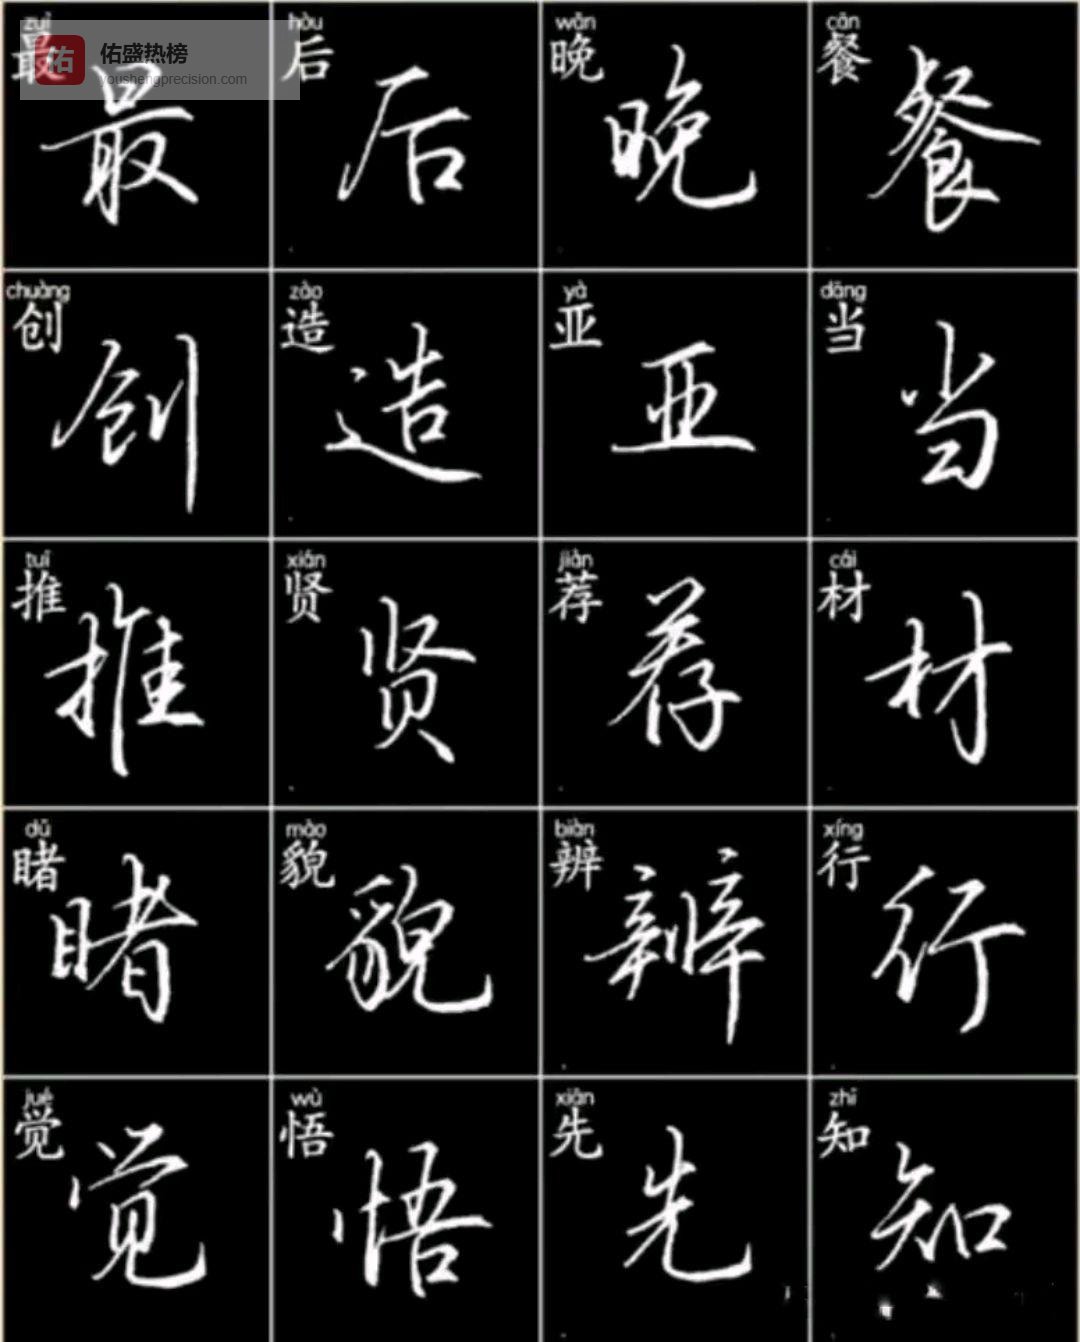 佑 佑盛热榜
youshengprecision.com
zuì hòu wǎn cān
最 后 晚 餐
最 后 晚 餐
chuàng zào yà dāng
创 造 亚 当
创 造 亚 当
tuī xián jiàn cái
推 贤 荐 材
推 贤 荐 材
dǔ mào biàn xíng
睹 貌 辨 行
睹 貌 辨 行
jué wù xiān zhī
觉 悟 先 知
觉 悟 先 知